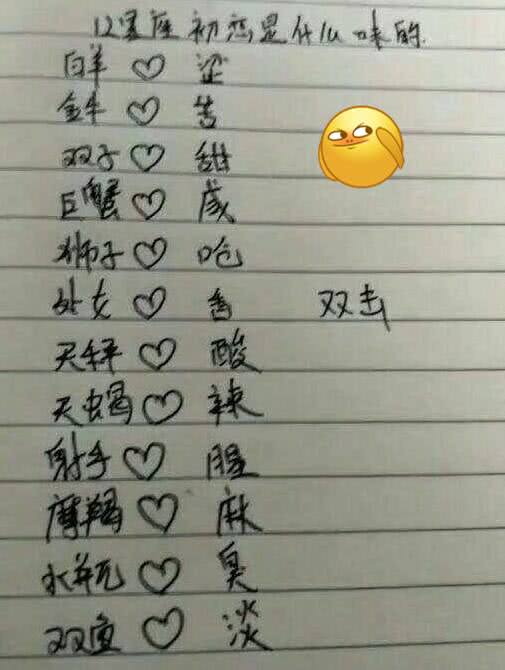 12星座初恋是什么味的
白羊♡涩
金牛♡苦
双子♡甜
巨蟹♡咸
狮子♡呛
处女♡香 双击
天秤♡酸
天蝎♡辣
射手♡腥
摩羯♡麻
水瓶♡臭
双鱼♡淡